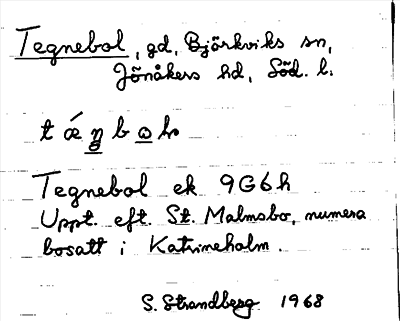 Tegnebol, gd, Björkviks sn,
Jönåkers hd, Söd. l.
t ǽ ŋ b ω lr
Tegnebol ek 9G6h
Uppt. eft. St. Malmsbo, numera
bosatt i Katrineholm.
S. Strandberg 1968